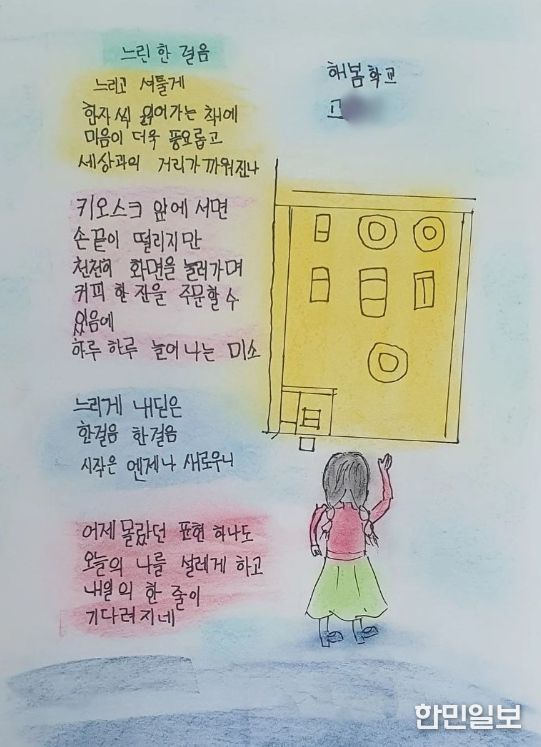 느린 한 걸음
해봄학교
고
느리고 서툴게
한자씩 읽어가는 책에
마음이 더욱 풍요롭고
세상과의 거리가 까워진나
키오스크 앞에 서면
손끝이 떨리지만
천천히 화면을 눌러가며
커피 한 잔을 주문할 수
있음에
하루 하루 늘어나는 미소
느리게 내딛은
한걸음 한걸음
시작은 언제나 새로우니
어제 몰랐던 표현 하나도
오늘의 나를 설레게 하고
내일의 한 줄이
기다려지네
한민일보